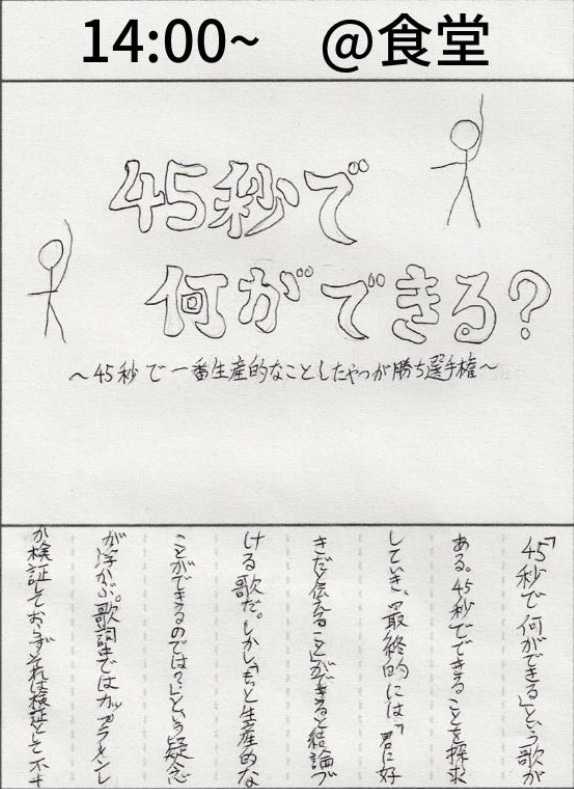 14:00~ @食堂
45秒で
何ができる?
～45秒で一番生産的なことしたやつが勝ち選手権～
「45秒で何ができる」という歌が
ある。45秒でできることを探求
していき、最終的には「君に好
きだと伝えること」ができると結論づ
ける歌だ。しかし、もっと生産的な
ことができるのでは?という疑念
が浮かぶ。歌詞ではカップラーメンし
か検証しておらず、それは検証として不十